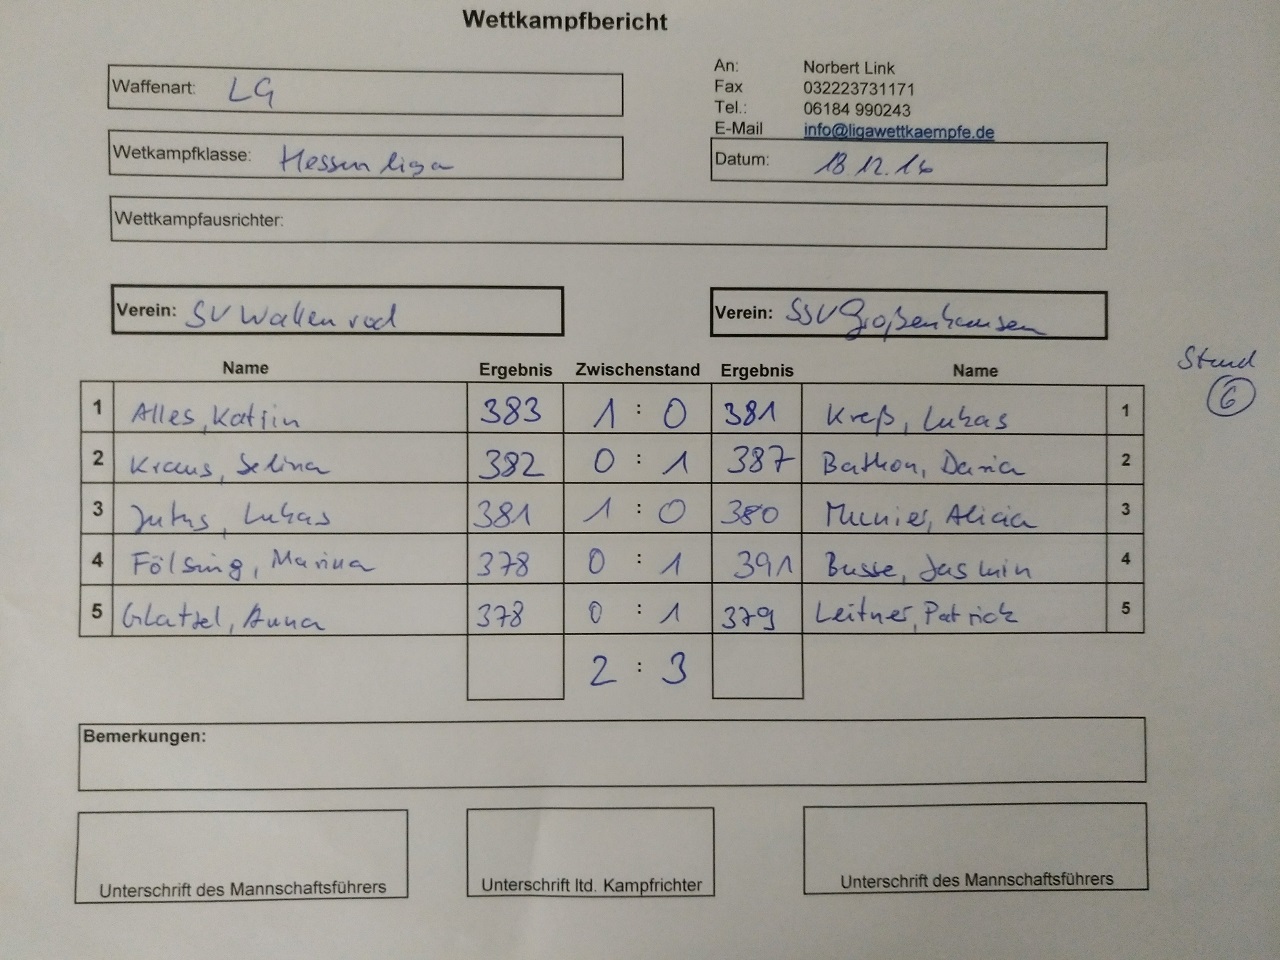 Wettkampfbericht
Waffenart: LG
An: Norbert Link
Fax 032223731171
Tel.: 06184 990243
E-Mail info@ligawettkaempfe.de
Wetkampfklasse: Hessenliga
Datum: 18.12.16
Wettkampfausrichter:
Verein: SV Wallenrod
Verein: SSV Großenhausen
Stand
6
Name Ergebnis Zwischenstand Ergebnis Name
1 Alles, Katrin 383 1 : 0 381 Kreß, Lukas 1
2 Kraus, Selina 382 0 : 1 387 Bathon, Dania 2
3 Lukas 381 1 : 0 380 Munier, Alicia 3
4 Fölsing, Marina 378 0 : 1 391 Busse, Jasmin 4
5 Glatzel, Anna 378 0 : 1 379 Leitner, Patrick 5
2 : 3
Bemerkungen:
Unterschrift des Mannschaftsführers
Unterschrift ltd. Kampfrichter
Unterschrift des Mannschaftsführers